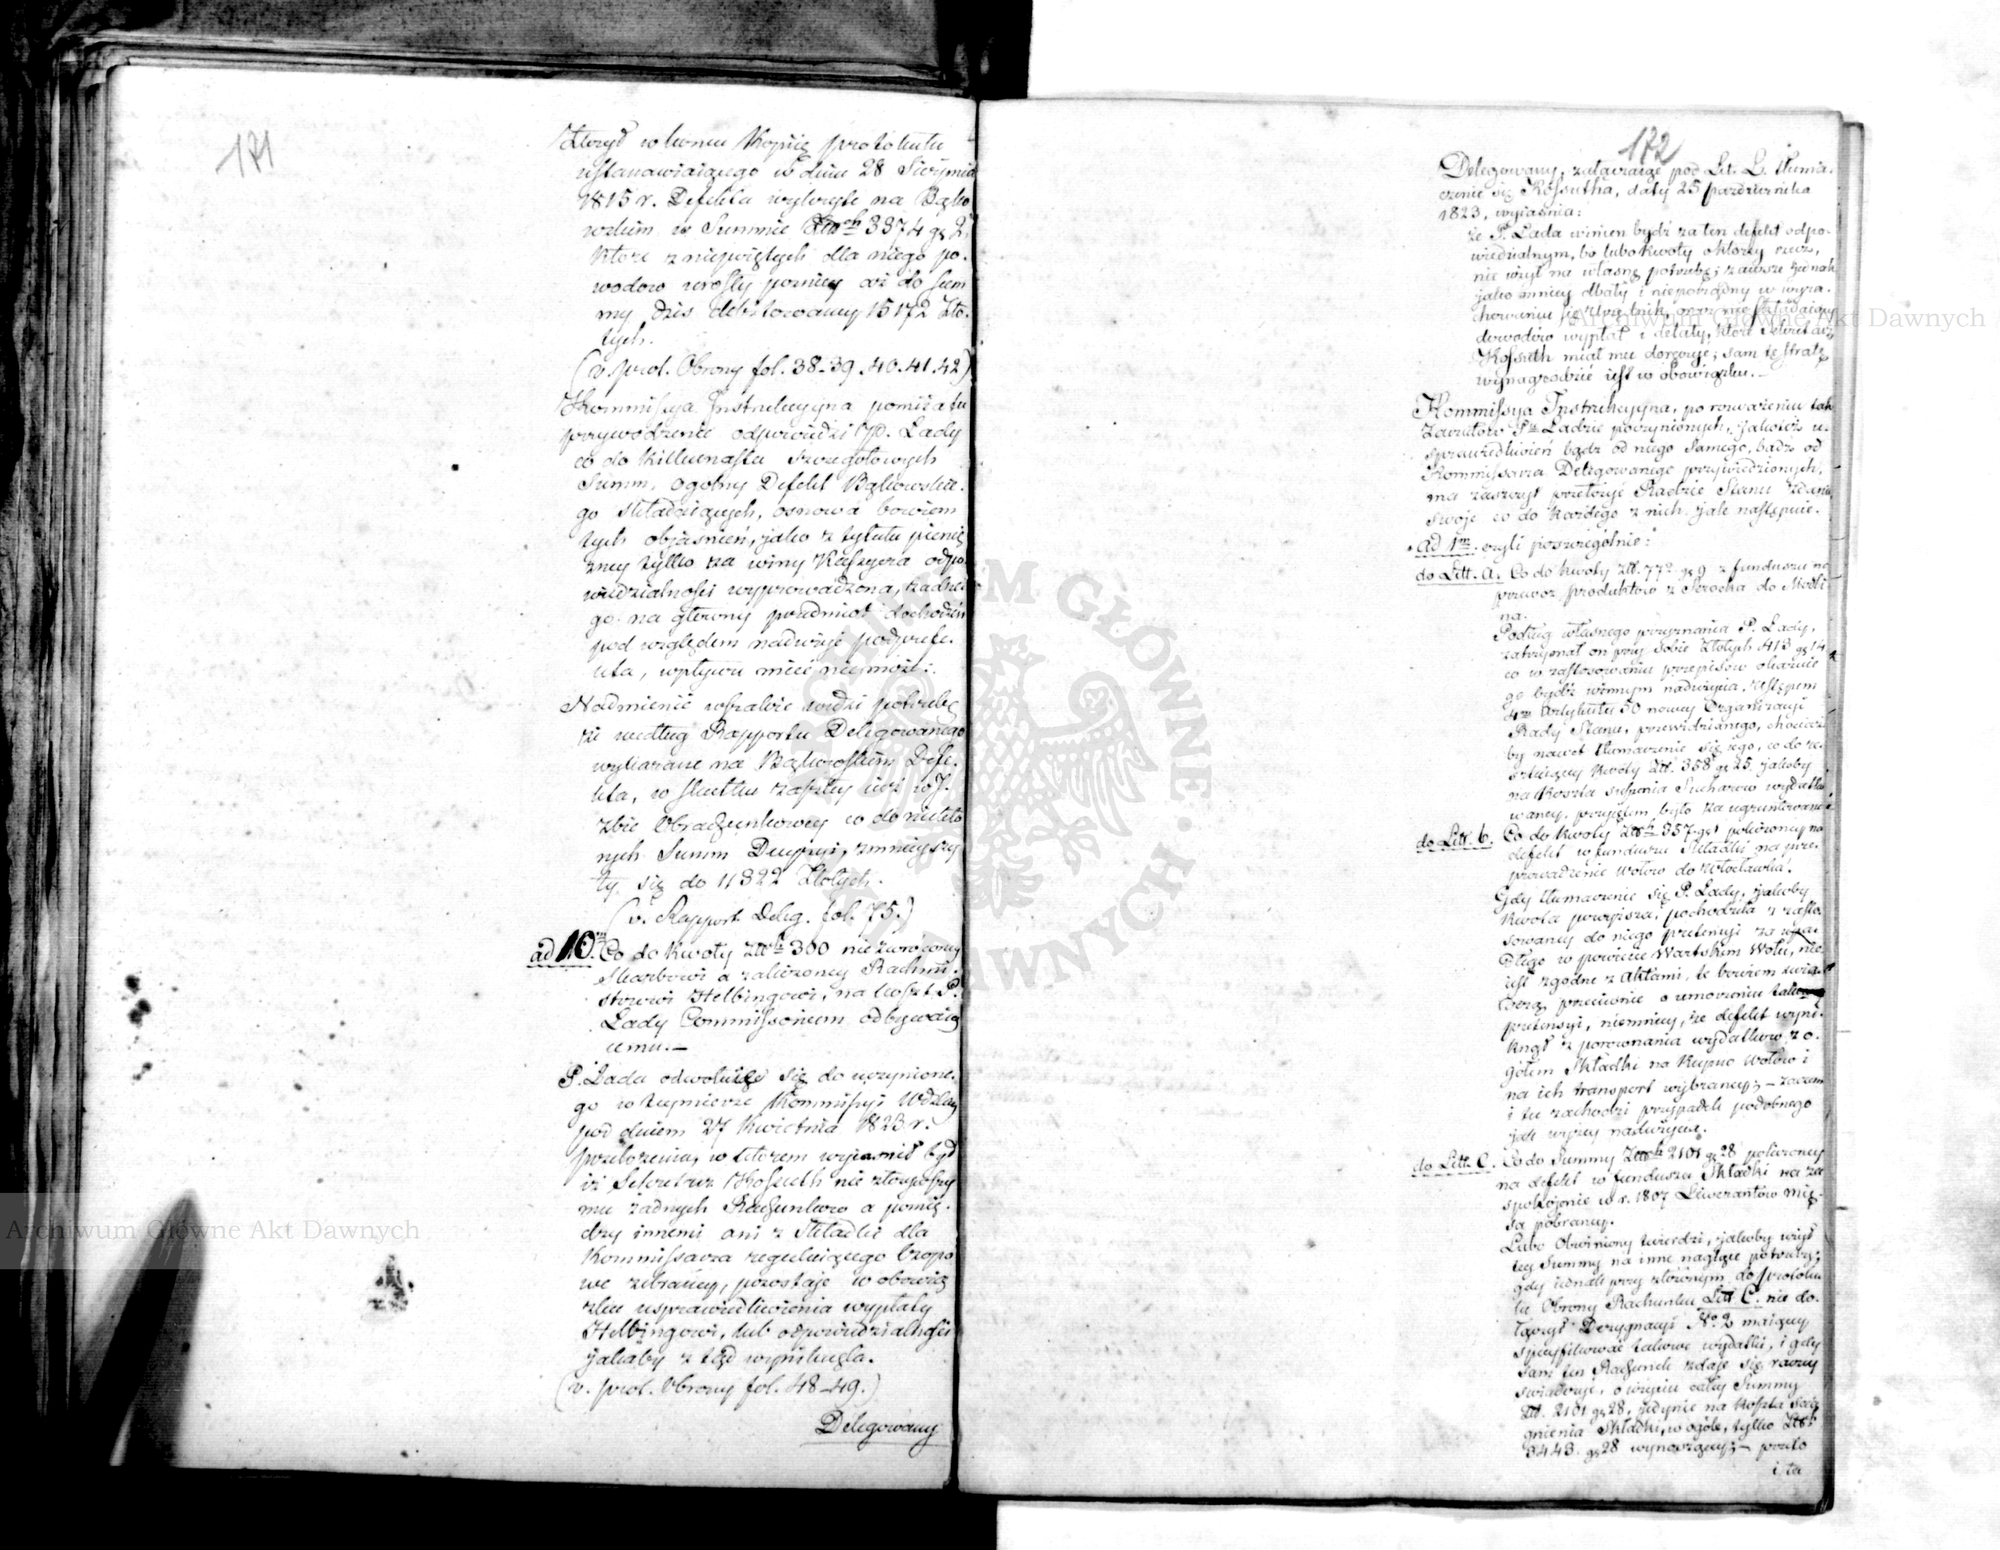 171
złożył w końcu Kopiię protokułu
ustanawiaiącego w dniu 28 Sierpnia
1815 r. Defekta wykryte na Bąko
wskim w Summie Złtch 3374 gr 2,
które z niepojętych dla niego po-
wodów urosły poźniey aż do sum
my dziś debitowaney 15172 Zło-
tych.
(v. prot. Obrony fol. 38-39.40.41.42)
Kommissya Instrukcyyna pomiia tu
przywodzenie odpowiedzi P. Łady
co do kilkunastu szczegółowych
Summ, ogólny Defekt Bąkowskie-
go składaiących, osnowa bowiem
tych obiaśnień, jako z tytułu pienię
żney tylko za winy Kassyera odpo-
wiedzialności wyprowadzona, żadne-
go na główny przedmiot dochodzeń
pod względem nadużyć podprefe-
kta, wpływu mieć nie może.
Nadmienić wszakże widzi potrzebę
że według Rapportu Delegowanego
wykazane na Bąkowskim Defe-
kta, w skutku zaszłey iuż w J-
zbie Obrachunkowey co do niektó
rych Summ Decyzyi, zmnieyszy
ły się do 11322 Złotych.
(v. Rapport Deleg. fol. 75.)
ad 10m. Co do kwoty Złtch 300 niezwróconey
Skarbowi a zaliczoney Rachmi-
strzowi Helbingowi, na koszt P.
Łady Commissorium odbywaią
cemu.—
P. Łada odwołuie się do uczynione-
go w teymierze Kommissyi Wdzkiey
pod dniem 27 Kwietnia 1823 r.
przełożenia, w którem wyiaśnił był
iż Sekretarz Kossuth nie złożywszy
mu żadnych Rachunków a pomię-
dzy innemi ani z Składki dla
Kommissarza reguluiącego Czopo
we zebraney, pozostaje w obowią
zku usprawiedliwienia wypłaty
Helbingowi, lub odpowiedzialności
jakaby z tąd wyniknęła.
(v. prot. Obrony fol. 48-49.)
Delegowany
172
Delegowany, załączaiąc pod Lit. L. tłuma-
czenie się Kossutha, daty 25 października
1823, wyiaśnia:
że P. Łada winien bydź za ten defekt odpo-
wiedzialnym, bo lubo kwoty o którey rzecz,
nie użył na własną potrzebę; zawsze jednak
jako mniey dbały i nieporządny w wyra-
chowaniu się urzędnik, oraz nie składaiący
dowodów wypłat i detaty, które Sekretarz
Kossuth miał mu doręczyć; sam tę stratę
wynagrodzić iest w obowiązku.—
Kommissya Instrukcyyna, po rozważeniu tak
Zarzutów Pu Ładzie poczynionych, jakoteż u-
sprawiedliwień bądź od niego samego, bądź od
Kommissarza Delegowanego przywiedzionych,
ma zaszczyt przełożyć Radzie Stanu Zdanie
swoje co do każdego z nich jak następuie.
ad 1m. czyli poszczególnie:
do Litt. a. Co do kwoty Złt. 772 gr 9 z funduszu na
przewóz produktów z Serocka do Modli
na.
Podług własnego przyznania P. Łady,
zatrzymał on przy sobie Złotych 413 gr 14
co w zastosowaniu przepisów okazuie
go bydź winnym nadużycia, Ustępem
4m Artykułu 50 nowey Organizacyi
Rady Stanu, przewidzianego, chociaż
by nawet tłumaczenie się iego, co do re-
sztuiącey kwoty Złt. 358 gr 25. jakoby
na koszta suszenia Sucharów wydatko
waney, przyiętem było za ugruntowane
do Litt. b. Co do kwoty Złtch 357. gr 1 policzoney na
defekt w funduszu Składki na prze-
prowadzenie wołów do Włocławka.
Gdy tłumaczenie się P. Łady, jakoby
kwota powyższa, pochodziła z zasto-
sowaney do niego pretensyi za upa-
dłego w powiecie Wartskim Wołu, nie
iest zgodne z Aktami, te bowiem świa-
dczą przeciwnie o umorzeniu takowey
pretensyi, niemniey, że defekt wyni-
knął z porównania wydatków z o-
gółem Składki na kupno wołów i
na ich transport wybraney;— zaczem
i tu zachodzi przypadek podobnego
jak wyżey nadużycia.
do Litt. C. Co do Summy Złtch 2101 gr 28 policzoney
na defekt w funduszu Składki na za
spokojenie w r. 1807 Liwerantów mię-
sa pobraney.
Lubo Obwiniony twierdzi, jakoby użył
tey Summy na inne naglące potrzeby;
gdy jednak przy złożonym do protoku
łu Obrony Rachunku Litt C. nie do-
łączył Dezygnacyi No 2 maiącey
specyfikować takowe wydatki, i gdy
sam ten Rachunek zdaje się raczey
świadczyć, o użyciu całey Summy
Złt. 2101 gr 28, jedynie na koszta ścią
gnienia Składki, w ogóle, tylko Złtch
3443. gr 28 wynoszącey;— przeto
i ta
Archiwum Główne Akt Dawnych
Archiwum Główne Akt Dawnych
ARCHIWUM GŁÓWNE AKT DAWNYCH